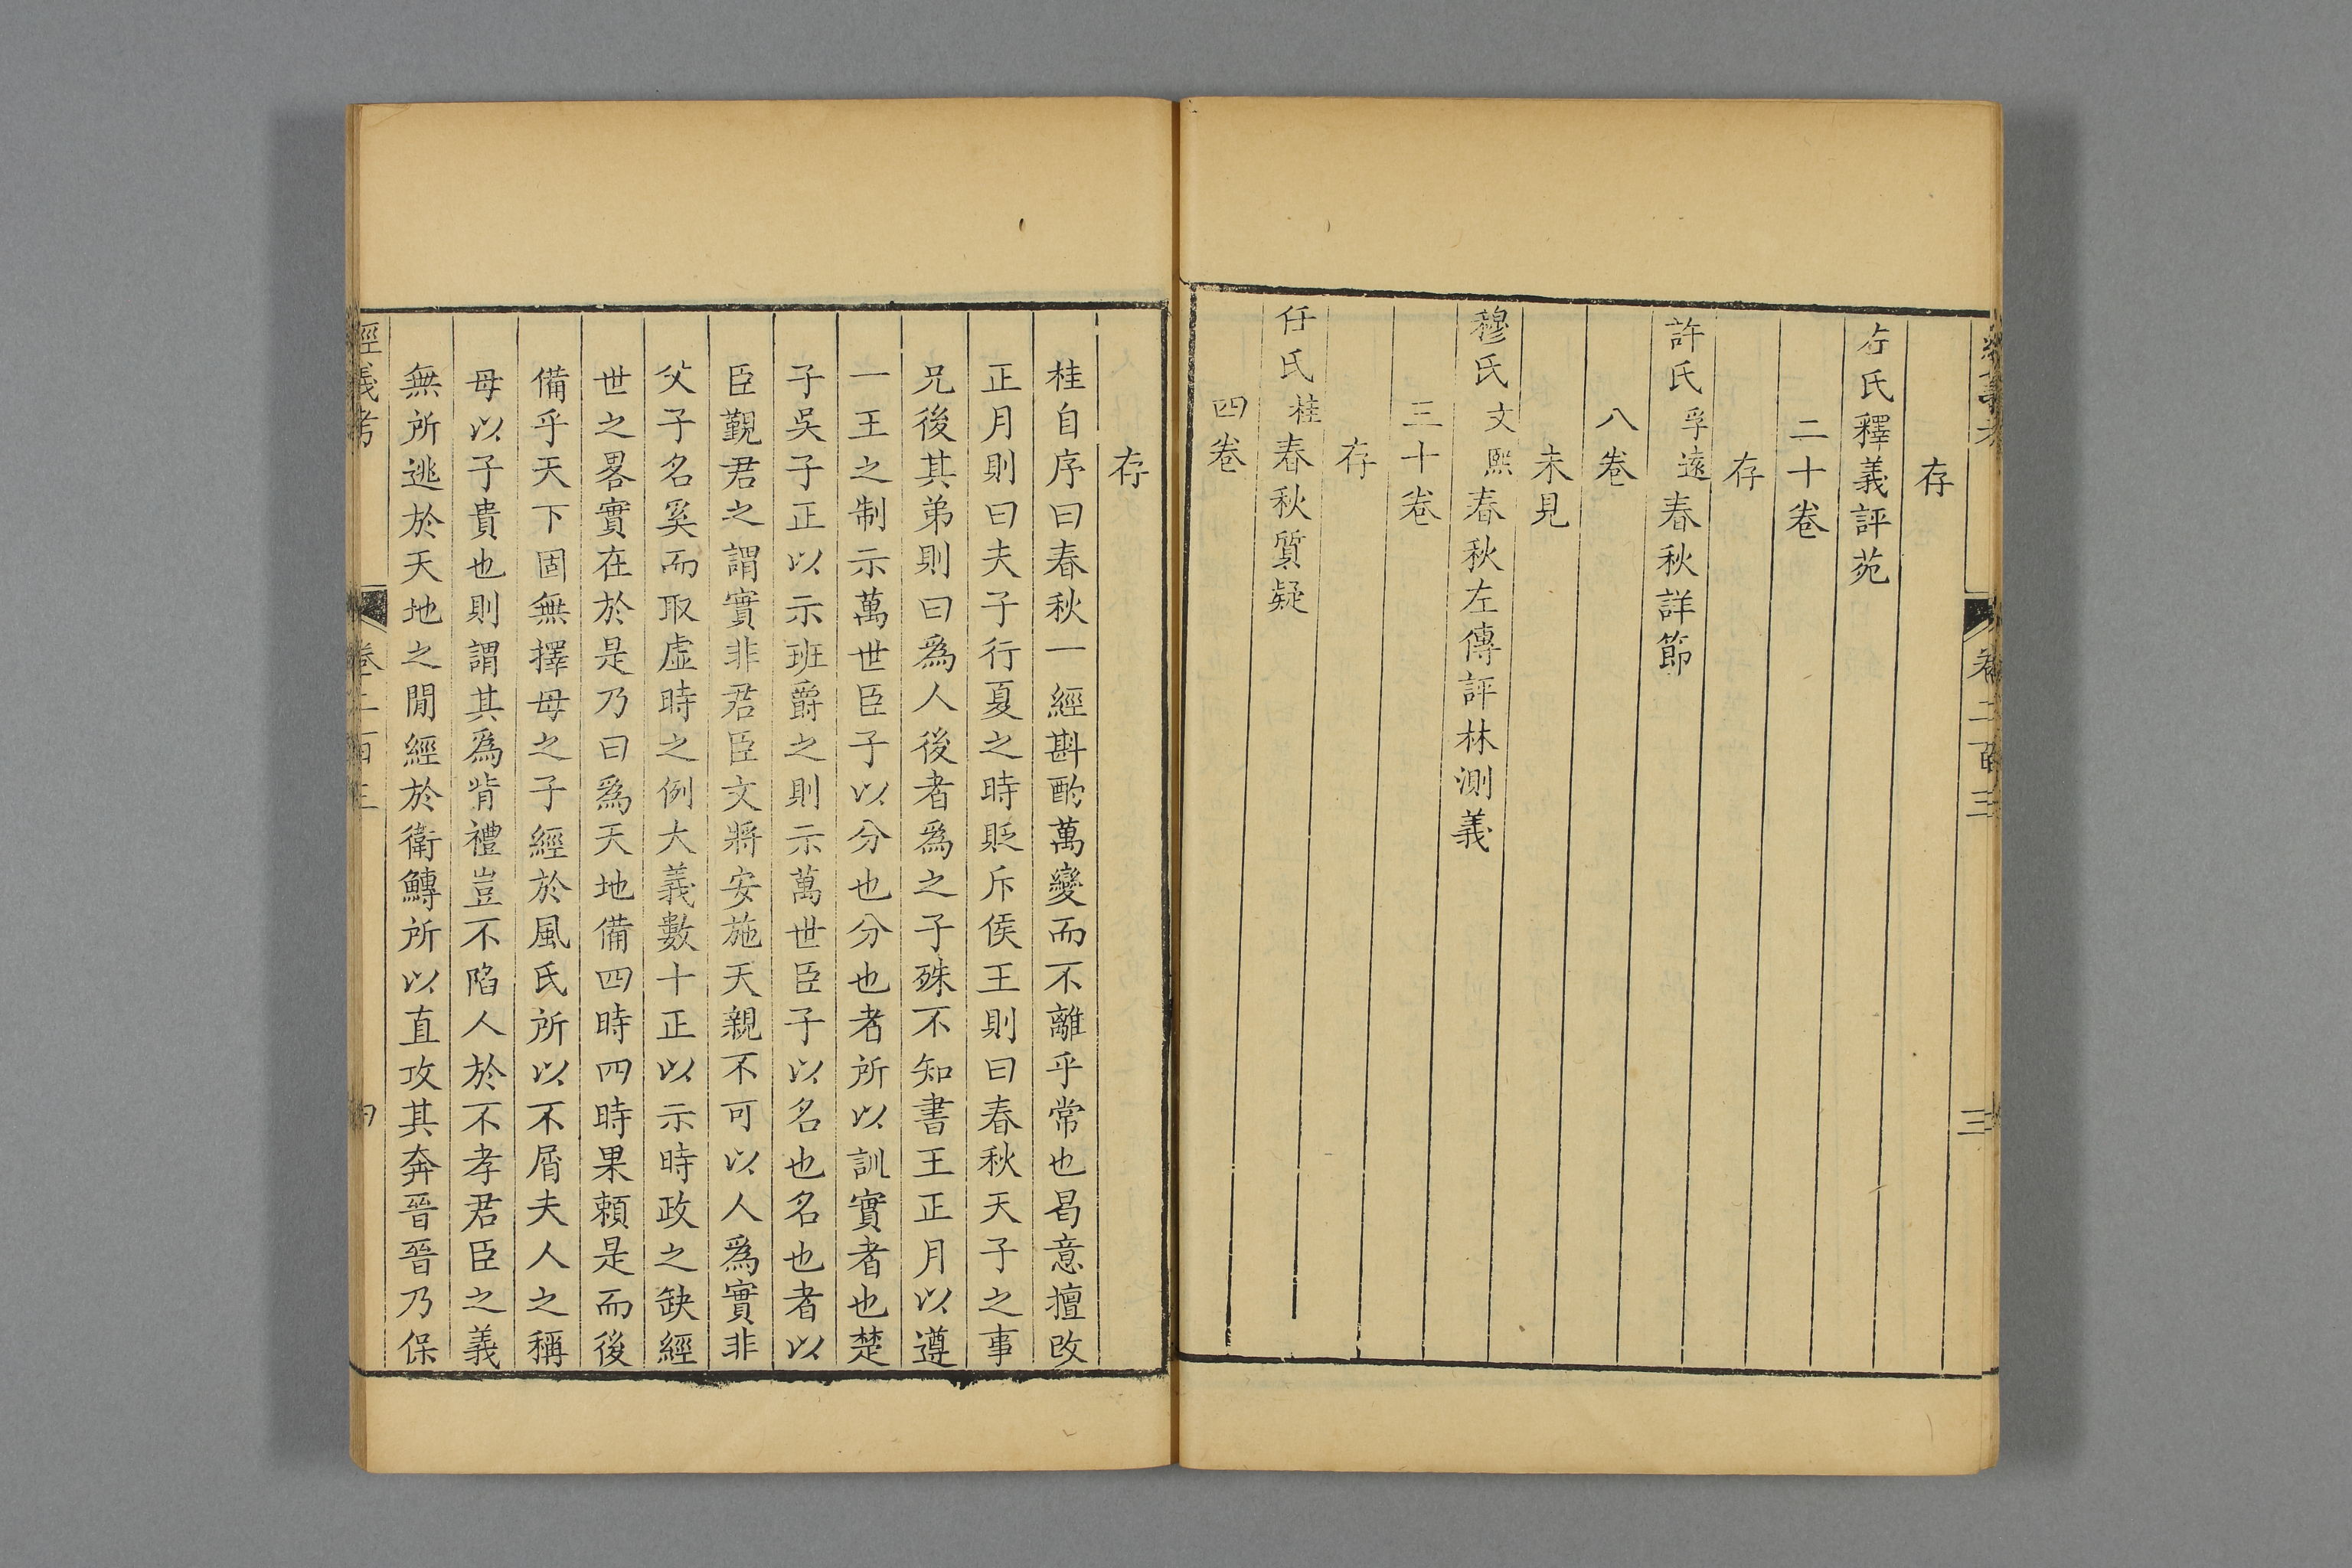 經義考 卷二百三 三
存
左氏釋義評苑
二十卷
存
許氏孚遠春秋詳節
八卷
未見
穆氏文熙春秋左傳評林測義
三十卷
存
任氏桂春秋質疑
四卷
存
桂自序曰春秋一經斟酌萬變而不離乎常也曷意擅改
正月則曰夫子行夏之時貶斥侯王則曰春秋天子之事
兄後其弟則曰爲人後者爲之子殊不知書王正月以遵
一王之制示萬世臣子以分也分也者所以訓實者也楚
子吳子正以示班爵之則示萬世臣子以名也名也者以
臣覲君之謂實非君臣文將安施天親不可以人爲實非
父子名奚而取虛時之例大義數十正以示時政之缺經
世之畧實在於是乃曰爲天地備四時四時果頼是而後
備乎天下固無擇母之子經於風氏所以不屑夫人之稱
母以子貴也則謂其爲背禮豈不陷人於不孝君臣之義
無所逃於天地之閒經於衛鱄所以直攻其奔晉晉乃保
經義考 卷二百三